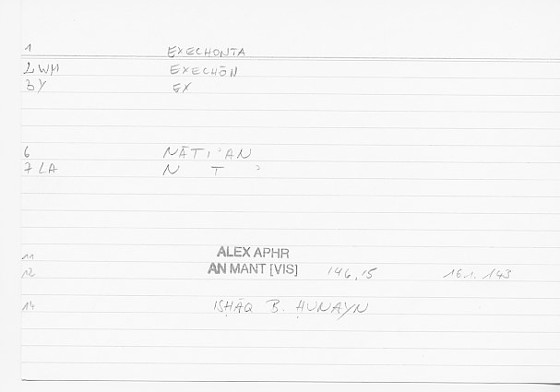 1 EXECHONTA
2 WM EXECHŌN
3 Y EX
6 NĀTIʾAN
7 LA N T ʾ
11 ALEX APHR
12 AN MANT [VIS] 146,15 16.1.143
14 ISḤĀQ B. ḤUNAYN